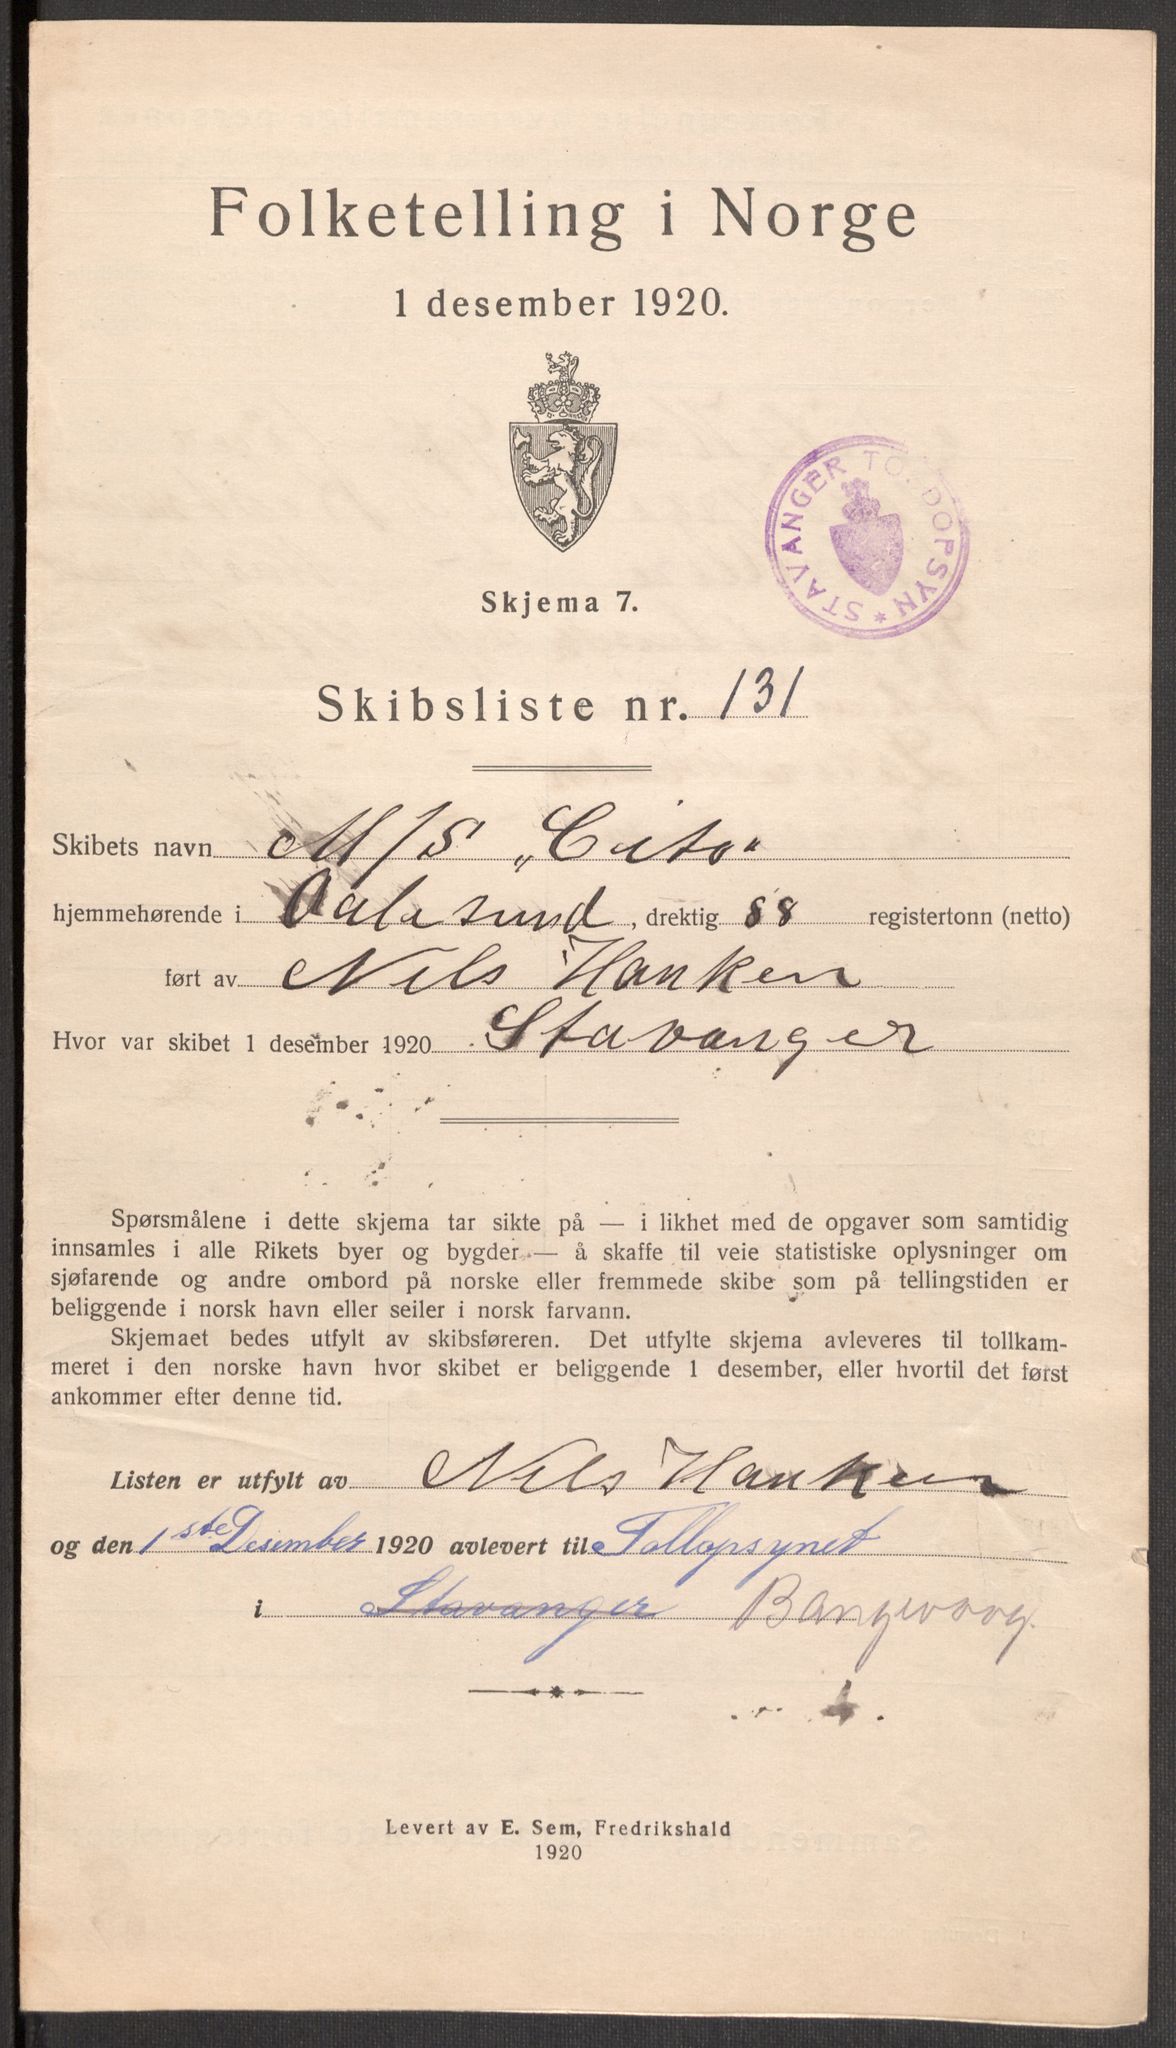 Folketelling i Norge
1 desember 1920.
STAVANGER TOLDOPSYN *
Skjema 7.
Skibsliste nr. 131
Skibets navn M/S „Cito"
hjemmehørende i Aalesund, drektig 88 registertonn (netto)
ført av Nils Hanken
Hvor var skibet 1 desember 1920 Stavanger
Spørsmålene i dette skjema tar sikte på — i likhet med de opgaver som samtidig
innsamles i alle Rikets byer og bygder — å skaffe til veie statistiske oplysninger om
sjøfarende og andre ombord på norske eller fremmede skibe som på tellingstiden er
beliggende i norsk havn eller seiler i norsk farvann.
Skjemaet bedes utfylt av skibsføreren. Det utfylte skjema avleveres til tollkam-
meret i den norske havn hvor skibet er beliggende 1 desember, eller hvortil det først
ankommer efter denne tid.
Listen er utfylt av Nils Hanken
og den 1ste Desember 1920 avlevert til Tollopsynet
i Stavanger
Levert av E. Sem, Fredrikshald
1920